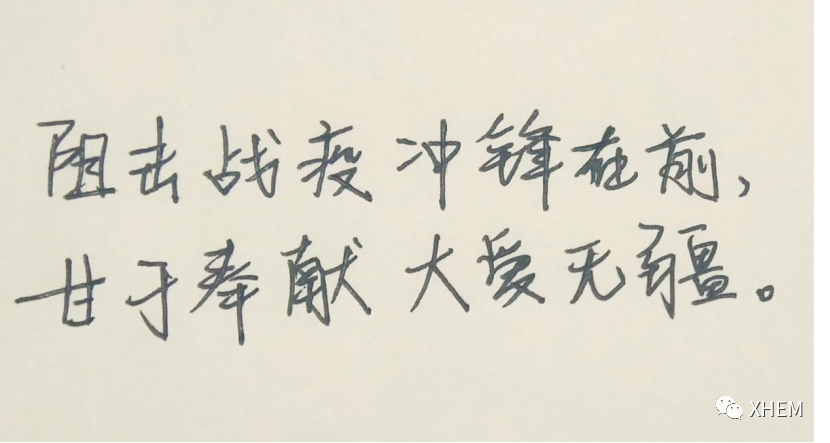 阻击战疫 冲锋在前，
甘于奉献 大爱无疆。
XHEM